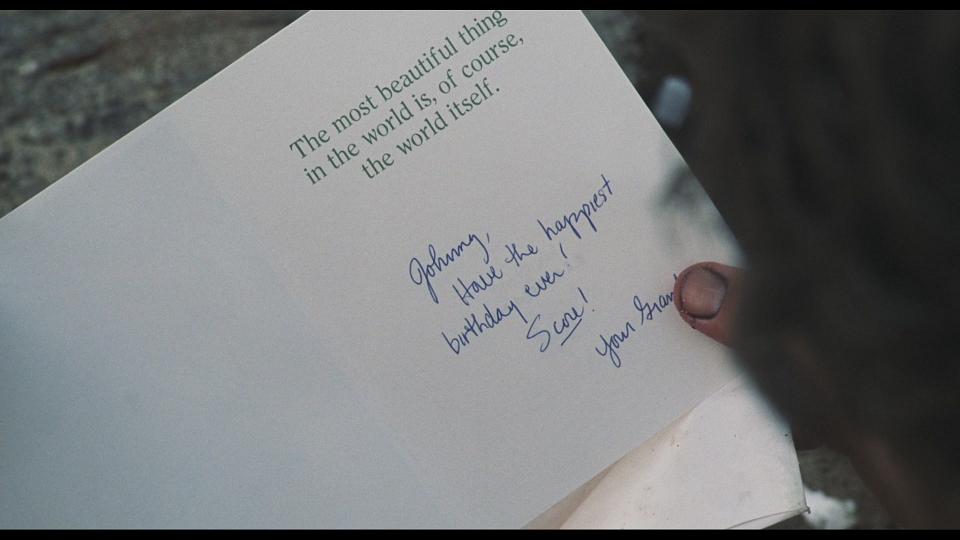 The most beautiful thing
in the world is, of course,
the world itself.
Johnny,
Have the happiest
birthday ever!
Score!
your Gran